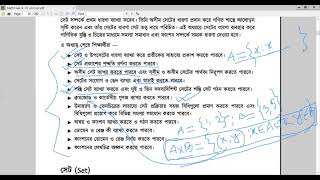 সেট সম্পর্কে প্রথম ধারণা ব্যাখ্যা করেন। তিনি অসীম সেটের ধারণা প্রদান করে গণিত শাস্ত্রে আলোড়ন
সৃষ্টি করেন এবং তাঁর সেটের ধারণা সেট তত্ত্ব নামে পরিচিত। এই অধ্যায়ে সেটের ধারণা ব্যবহার করে
গাণিতিক যুক্তি ও চিহ্নের মাধ্যমে সমস্যা সমাধান এবং ফাংশন সম্পর্কে সম্যক ধারণা দেওয়া হবে।
এ অধ্যায় শেষে শিক্ষার্থীরা —
সেট ও উপসেটের ধারণা ব্যাখ্যা করে প্রতীকের সাহায্যে প্রকাশ করতে পারবে।
সেট প্রকাশের পদ্ধতি বর্ণনা করতে পারবে।
অসীম সেট ব্যাখ্যা করতে পারবে এবং সসীম ও অসীম সেটের পার্থক্য নিরূপণ করতে পারবে।
সেটের সংযোগ ও ছেদ ব্যাখ্যা এবং যাচাই করতে পারবে।
শক্তি সেট ব্যাখ্যা করতে এবং দুই ও তিন সদস্যবিশিষ্ট সেটের শক্তি সেট গঠন করতে পারবে।
ক্রমজোড় ও কার্তেসীয় গুণজ ব্যাখ্যা করতে পারবে।
উদাহরণ ও ভেনচিত্রের সাহায্যে সেট প্রক্রিয়ার সহজ বিধিগুলো প্রমাণ করতে পারবে এবং
বিধিগুলো প্রয়োগ করে বিভিন্ন সমস্যা সমাধান করতে পারবে।
অন্বয় ও ফাংশন ব্যাখ্যা করতে ও গঠন করতে পারবে।
ডোমেন ও রেঞ্জ কী ব্যাখ্যা করতে পারবে।
ফাংশনের ডোমেন ও রেঞ্জ নির্ণয় করতে পারবে।
ফাংশনের লেখচিত্র অঙ্কন করতে পারবে।
সেট (Set)